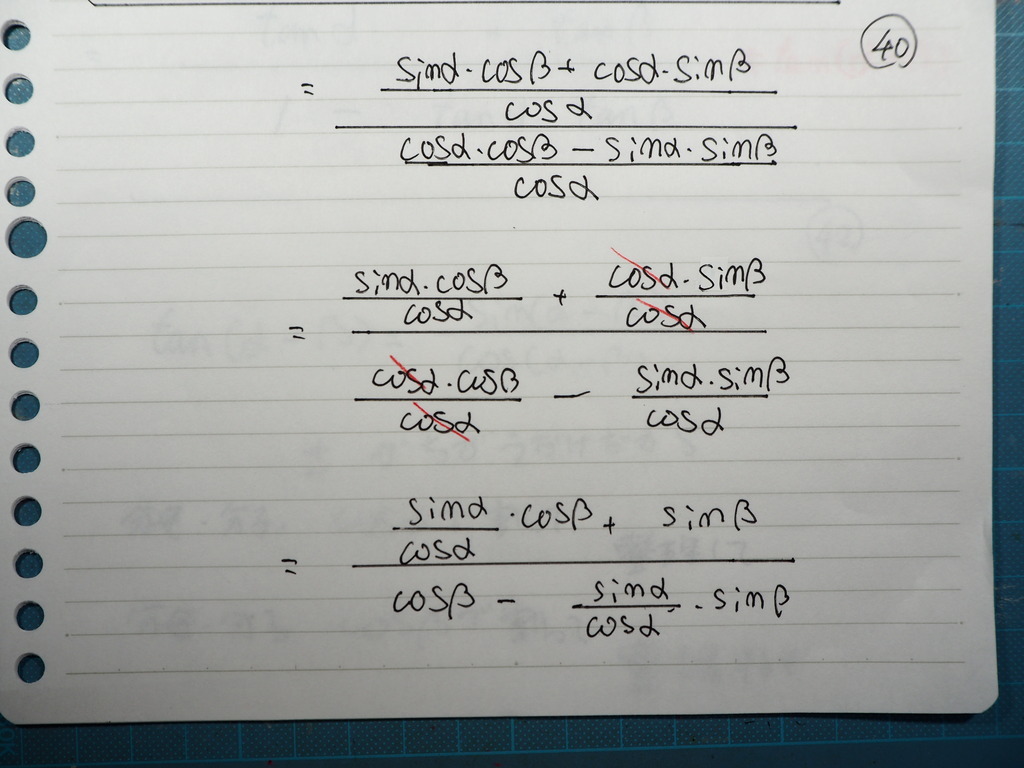 40
sinα·cosβ + cosα·sinβ
=
cosα
cosα·cosβ − sinα·sinβ
cosα
sinα·cosβ + cosα·sinβ
cosα cosα
=
cosα·cosβ − sinα·sinβ
cosα cosα
sinα ·cosβ + sinβ
cosα
=
cosβ − sinα · sinβ
cosα